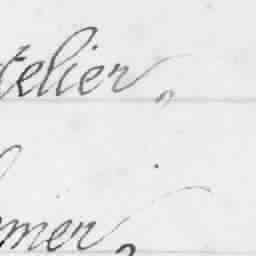 telier,
mier